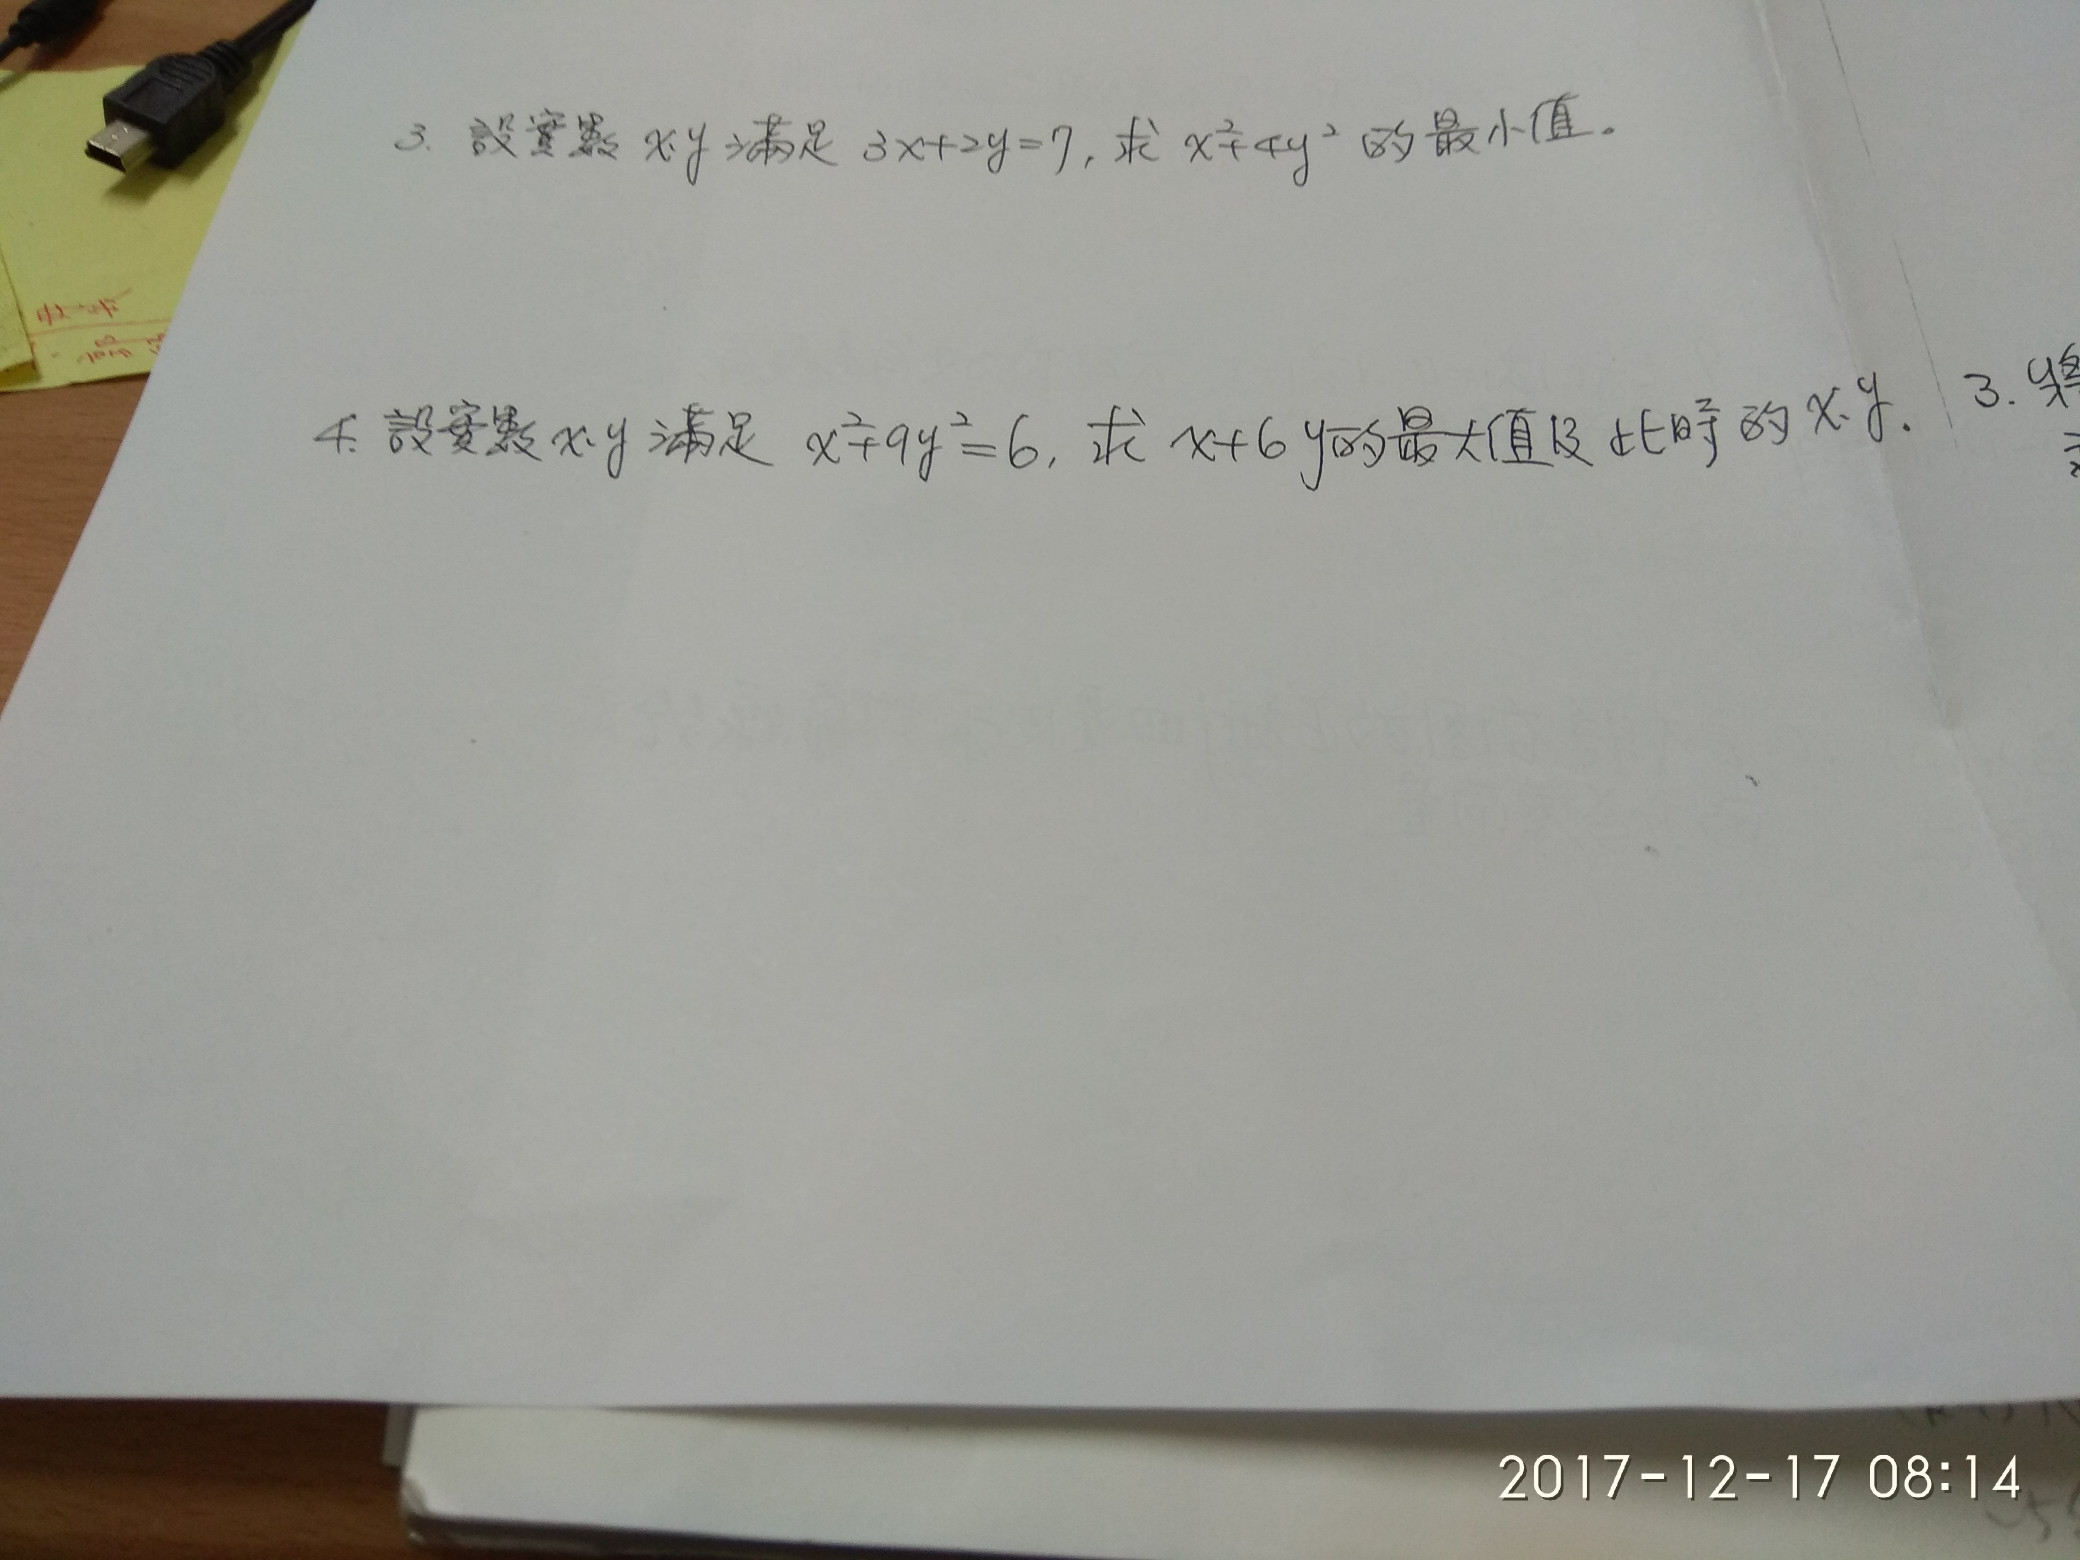 3. 設實數 x.y 滿足 3x+2y=7, 求 x²+4y² 的最小值。
4. 設實數 x.y 滿足 x²+9y²=6, 求 x+6y的最大值及此時的 x.y.
3.
2017-12-17 08:14